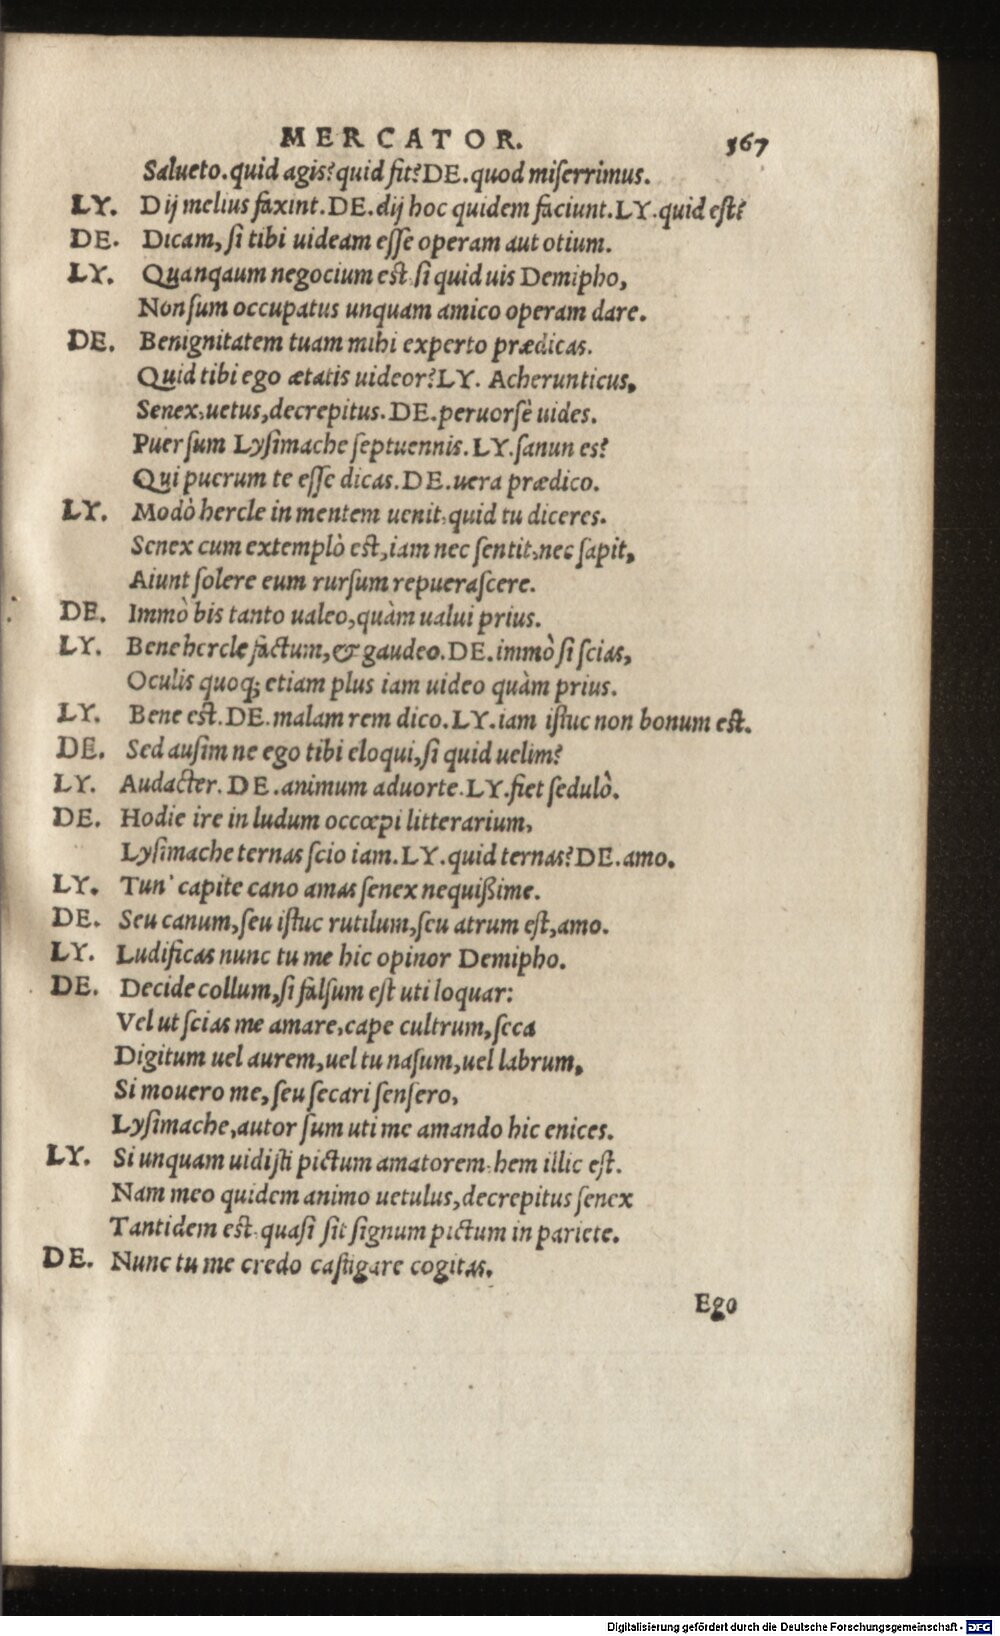 MERCATOR. 367
Salueto. quid agis? quid fit? DE. quod miserrimus.
LY. Dij melius faxint. DE. dij hoc quidem faciunt. LY. quid est?
DE. Dicam, si tibi uideam esse operam aut otium.
LY. Quanqaum negocium est, si quid uis Demipho,
Non sum occupatus unquam amico operam dare.
DE. Benignitatem tuam mihi experto prædicas.
Quid tibi ego ætatis uideor? LY. Acherunticus,
Senex, uetus, decrepitus. DE. peruorsè uides.
Puer sum Lysimache septuennis. LY. sanun es?
Qui puerum te esse dicas. DE. uera prædico.
LY. Modò hercle in mentem uenit, quid tu diceres.
Senex cum extemplò est, iam nec sentit, nec sapit,
Aiunt solere eum rursum repuerascere.
DE. Immò bis tanto ualeo, quàm ualui prius.
LY. Bene hercle factum, & gaudeo. DE. immò si scias,
Oculis quoq; etiam plus iam uideo quàm prius.
LY. Bene est. DE. malam rem dico. LY. iam istuc non bonum est.
DE. Sed ausim ne ego tibi eloqui, si quid uelim?
LY. Audacter. DE. animum aduorte. LY. fiet sedulò.
DE. Hodie ire in ludum occœpi litterarium,
Lysimache ternas scio iam. LY. quid ternas? DE. amo.
LY. Tun' capite cano amas senex nequißime.
DE. Seu canum, seu istuc rutilum, seu atrum est, amo.
LY. Ludificas nunc tu me hic opinor Demipho.
DE. Decide collum, si falsum est uti loquar:
Vel ut scias me amare, cape cultrum, seca
Digitum uel aurem, uel tu nasum, uel labrum,
Si mouero me, seu secari sensero,
Lysimache, autor sum uti me amando hic enices.
LY. Si unquam uidisti pictum amatorem, hem illic est.
Nam meo quidem animo uetulus, decrepitus senex
Tantidem est, quasi sit signum pictum in pariete.
DE. Nunc tu me credo castigare cogitas.
Ego
Digitalisierung gefördert durch die Deutsche Forschungsgemeinschaft - DFG